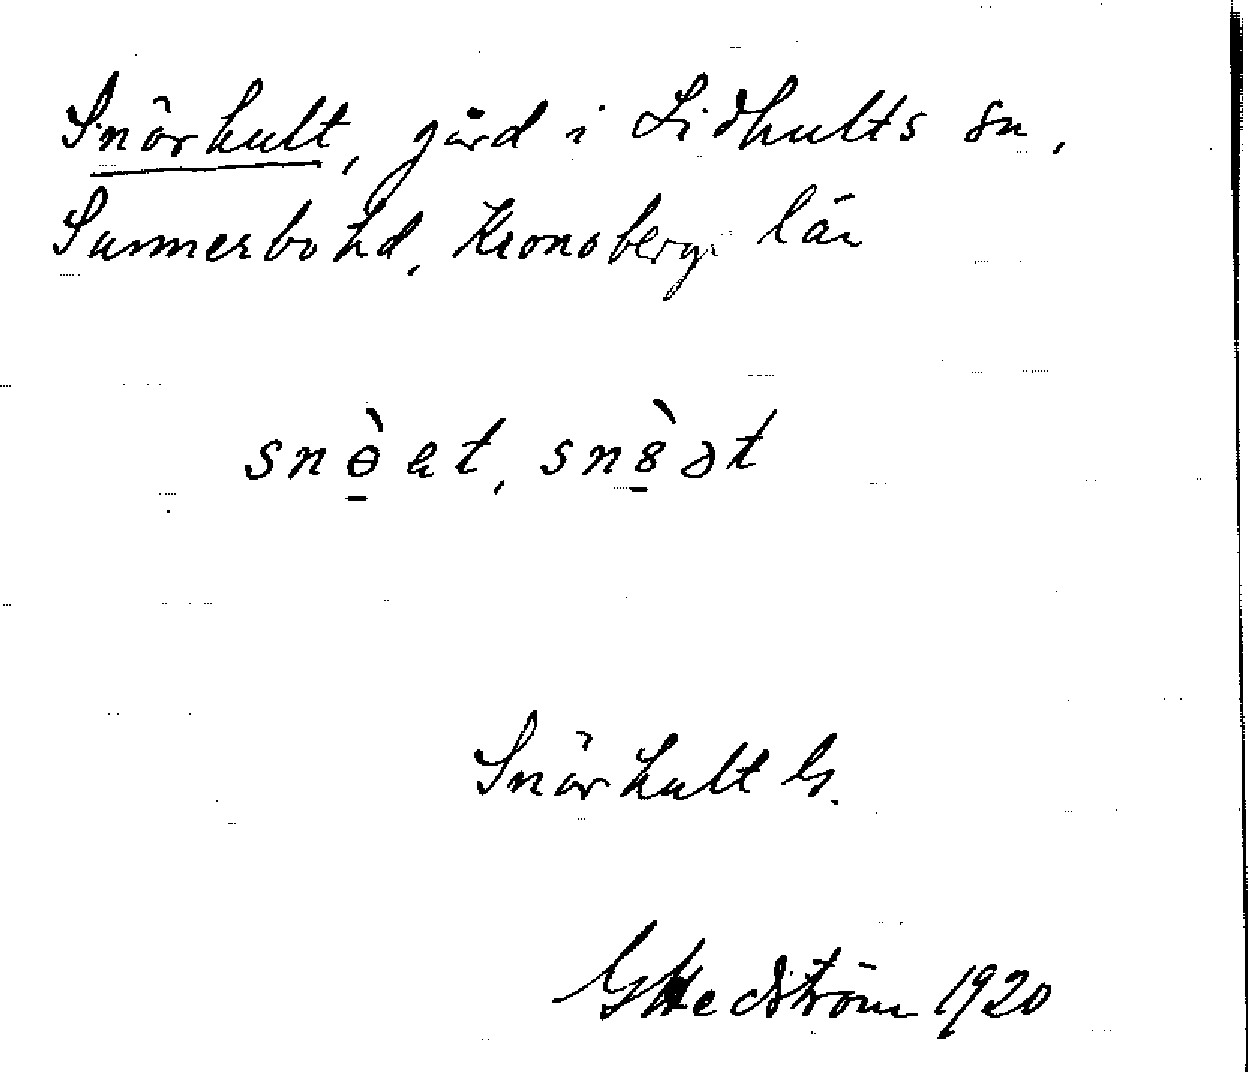 Snörhult, gård i Lidhults sn,
Sunnerbo hd, Kronobergs län
snө̠̀et, sn8̠̀ət
Snörhult G.
G Hedström 1920